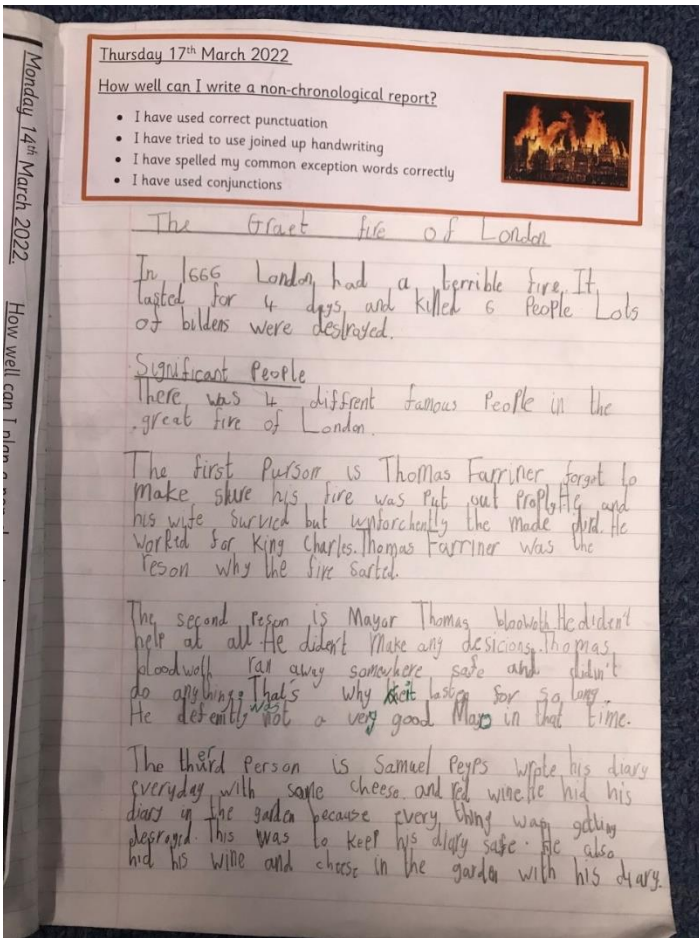 Monday 14th March 2022.
How well can I plan a
Thursday 17th March 2022
How well can I write a non-chronological report?
• I have used correct punctuation
• I have tried to use joined up handwriting
• I have spelled my common exception words correctly
• I have used conjunctions
The Graet fire of London
In 1666 London had a terrible fire. It
lasted for 4 days and killed 6 People Lots
of bilders were destroyed.
Significant People
There was 4 diffrent famous People in the
great fire of London.
The first Purson is Thomas Farriner forgot to
make shure his fire was put out proply. He and
his wife survied but unforchently the made died. He
worked for King Charles. Thomas Farriner was the
reson why the fire sarted.
The second peson is Mayor Thomas bloowoth. He diden't
help at all He diden't make any desicions. Thomas
bloodwoth ran away somewhere safe and didin't
do anything. That's why it lasted for so long.
He defenitly was not a very good Mayo in that time.
The thuerd Person is Samuel Peyps wrote his diary
everyday with some cheese and red wine. He hid his
diary in the garden because every thing was getting
desroyed. This was to keep his diary safe. He also
hid his wine and cheese in the garden with his diary.